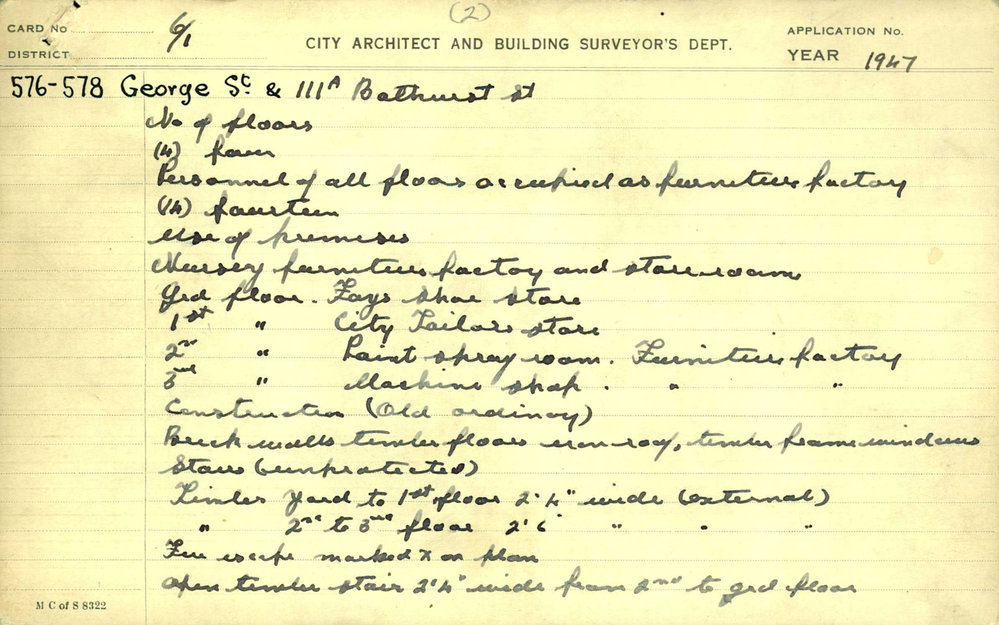 (2)
CARD No 6/1
CITY ARCHITECT AND BUILDING SURVEYOR'S DEPT.
APPLICATION No.
DISTRICT
YEAR 1947
576-578 George St. & 111A Bathurst St
No of floors
(4) four
Personnel of all floors occupied as furniture factory
(14) fourteen
Use of premises
Nursey furniture factory and store rooms
Grd floor. Fays shoe store
1st " City Tailors store
2nd " Paint spray room. Furniture factory
3rd " Machine shop. " "
Construction (Old ordinay)
Brick walls timber floors iron roof, timber frame windows
Stairs (unprotected)
Timber Yard to 1st floor 2'4" wide (external)
" 2nd to 3rd floor 2'6" " " "
Fire escape marked X on plan
Open timber stair 2'4" wide from 2nd to grd floor
M C of S 8322